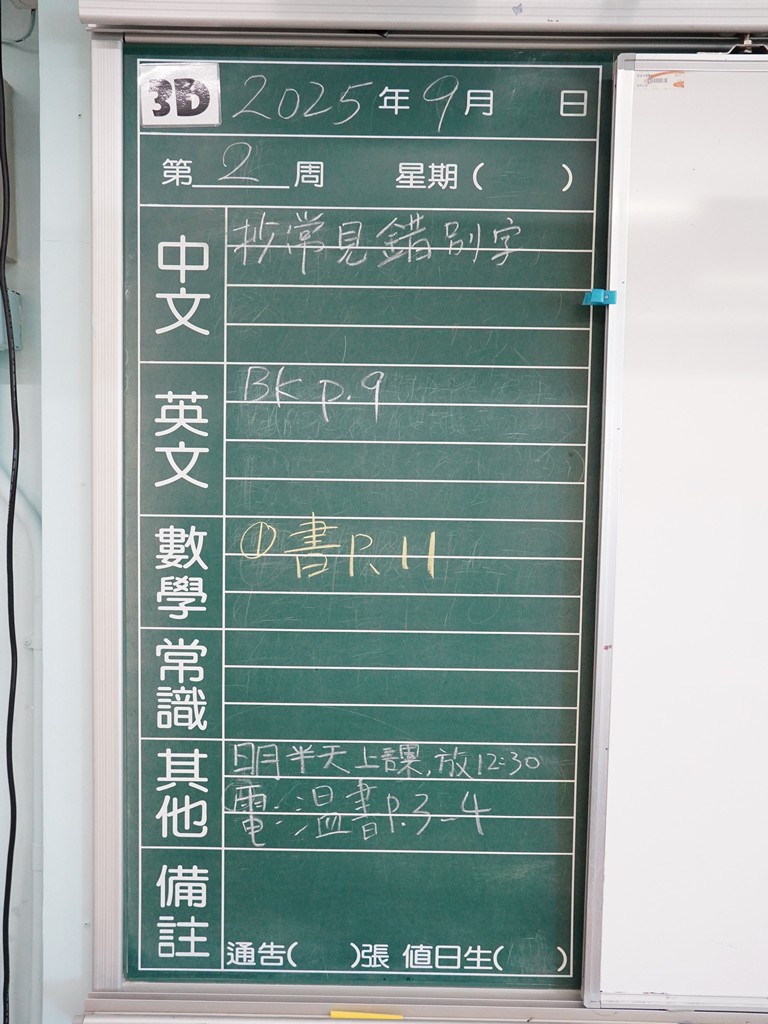 3D 2025年9月 日
第2周 星期( )
中文 抄常見錯別字
英文 BK p.9
數學 ①書P.11
常識
其他 明半天上課,放12:30
電:溫書P.3-4
備註
通告( )張 值日生( )